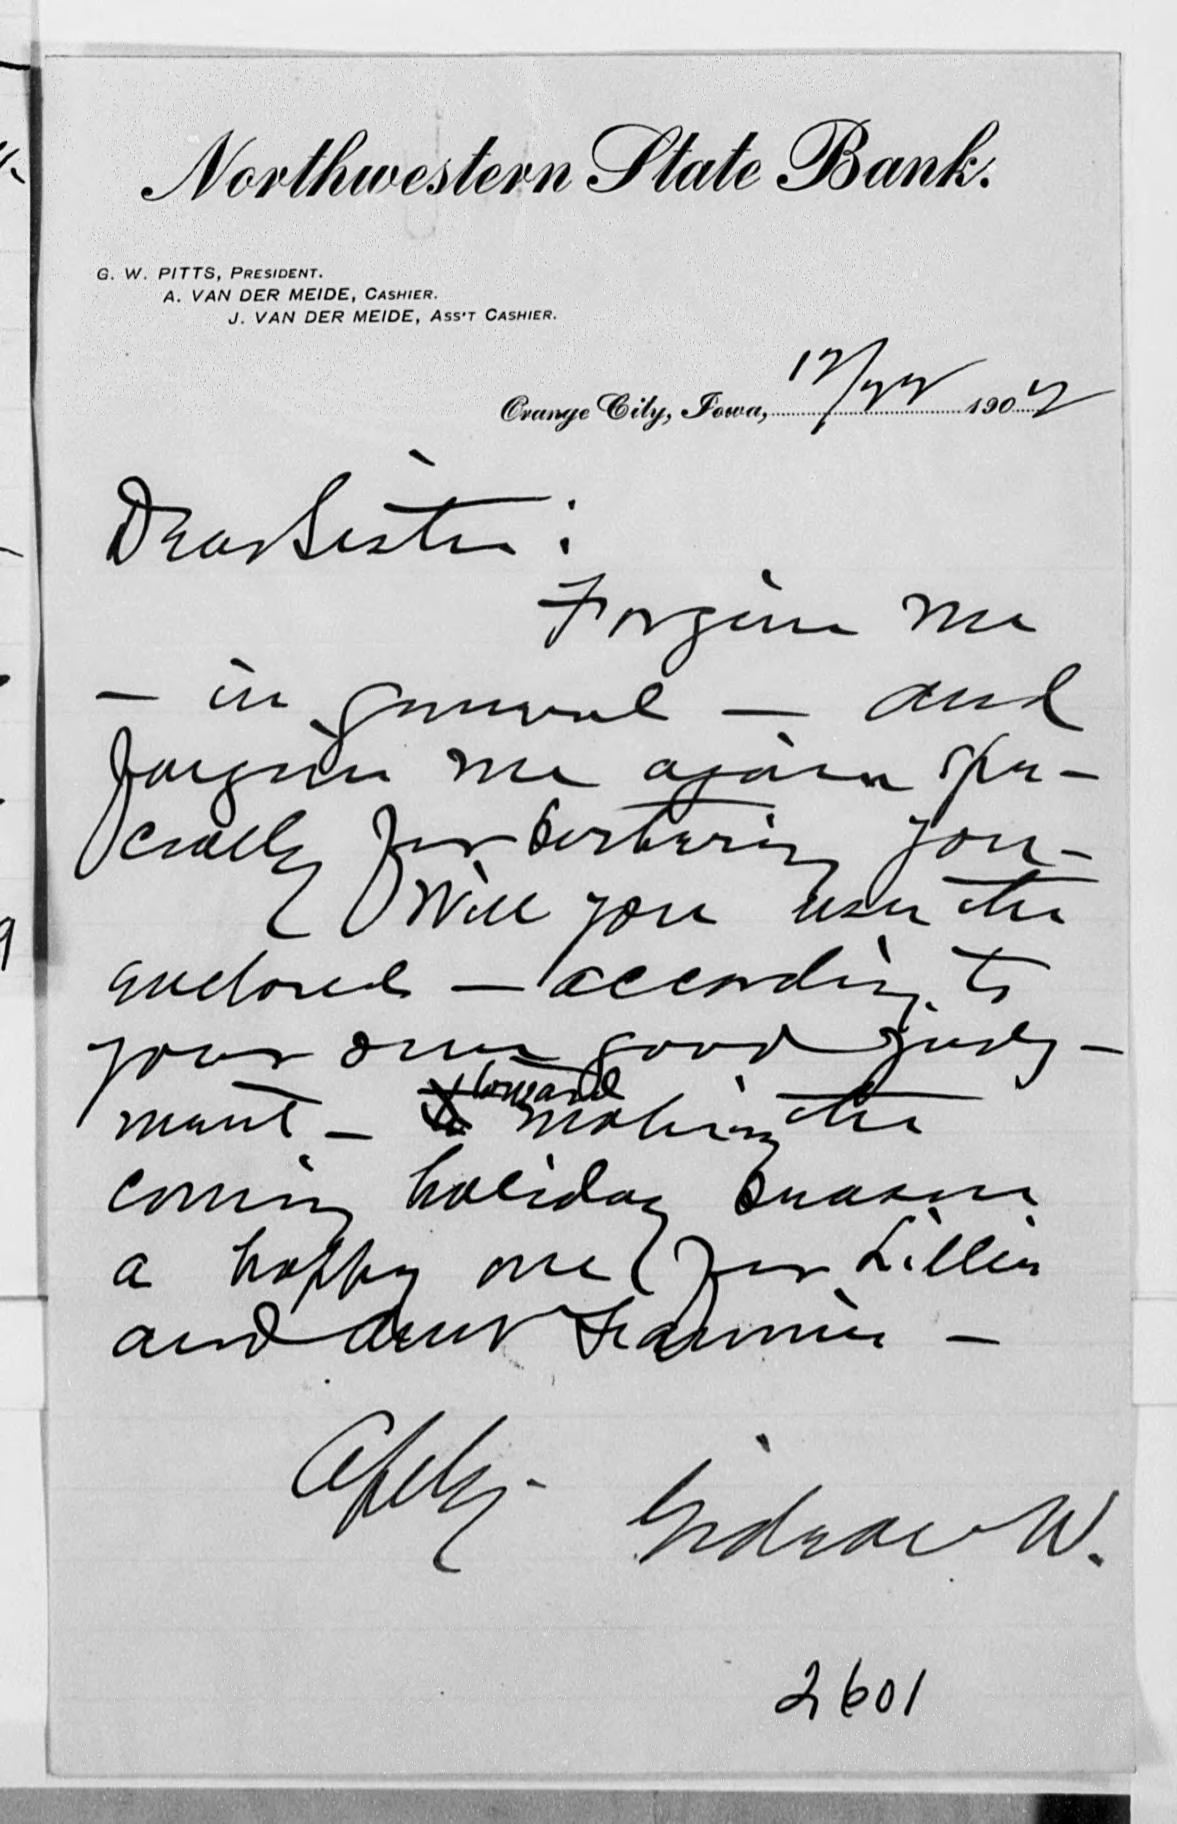 Northwestern State Bank.
G. W. PITTS, PRESIDENT.
A. VAN DER MEIDE, CASHIER.
J. VAN DER MEIDE, ASS'T CASHIER.
Orange City, Iowa, 12/22 1902
Dear Sister:
Forgive me
— in general — and
forgive me again spe-
cially for bothering you-
Will you use the
enclosed — according to
your own good judg-
ment — toward making the
coming holiday season
a happy one for Lillie
and Aunt Fannie —
Affly-
Gideon W.
2601